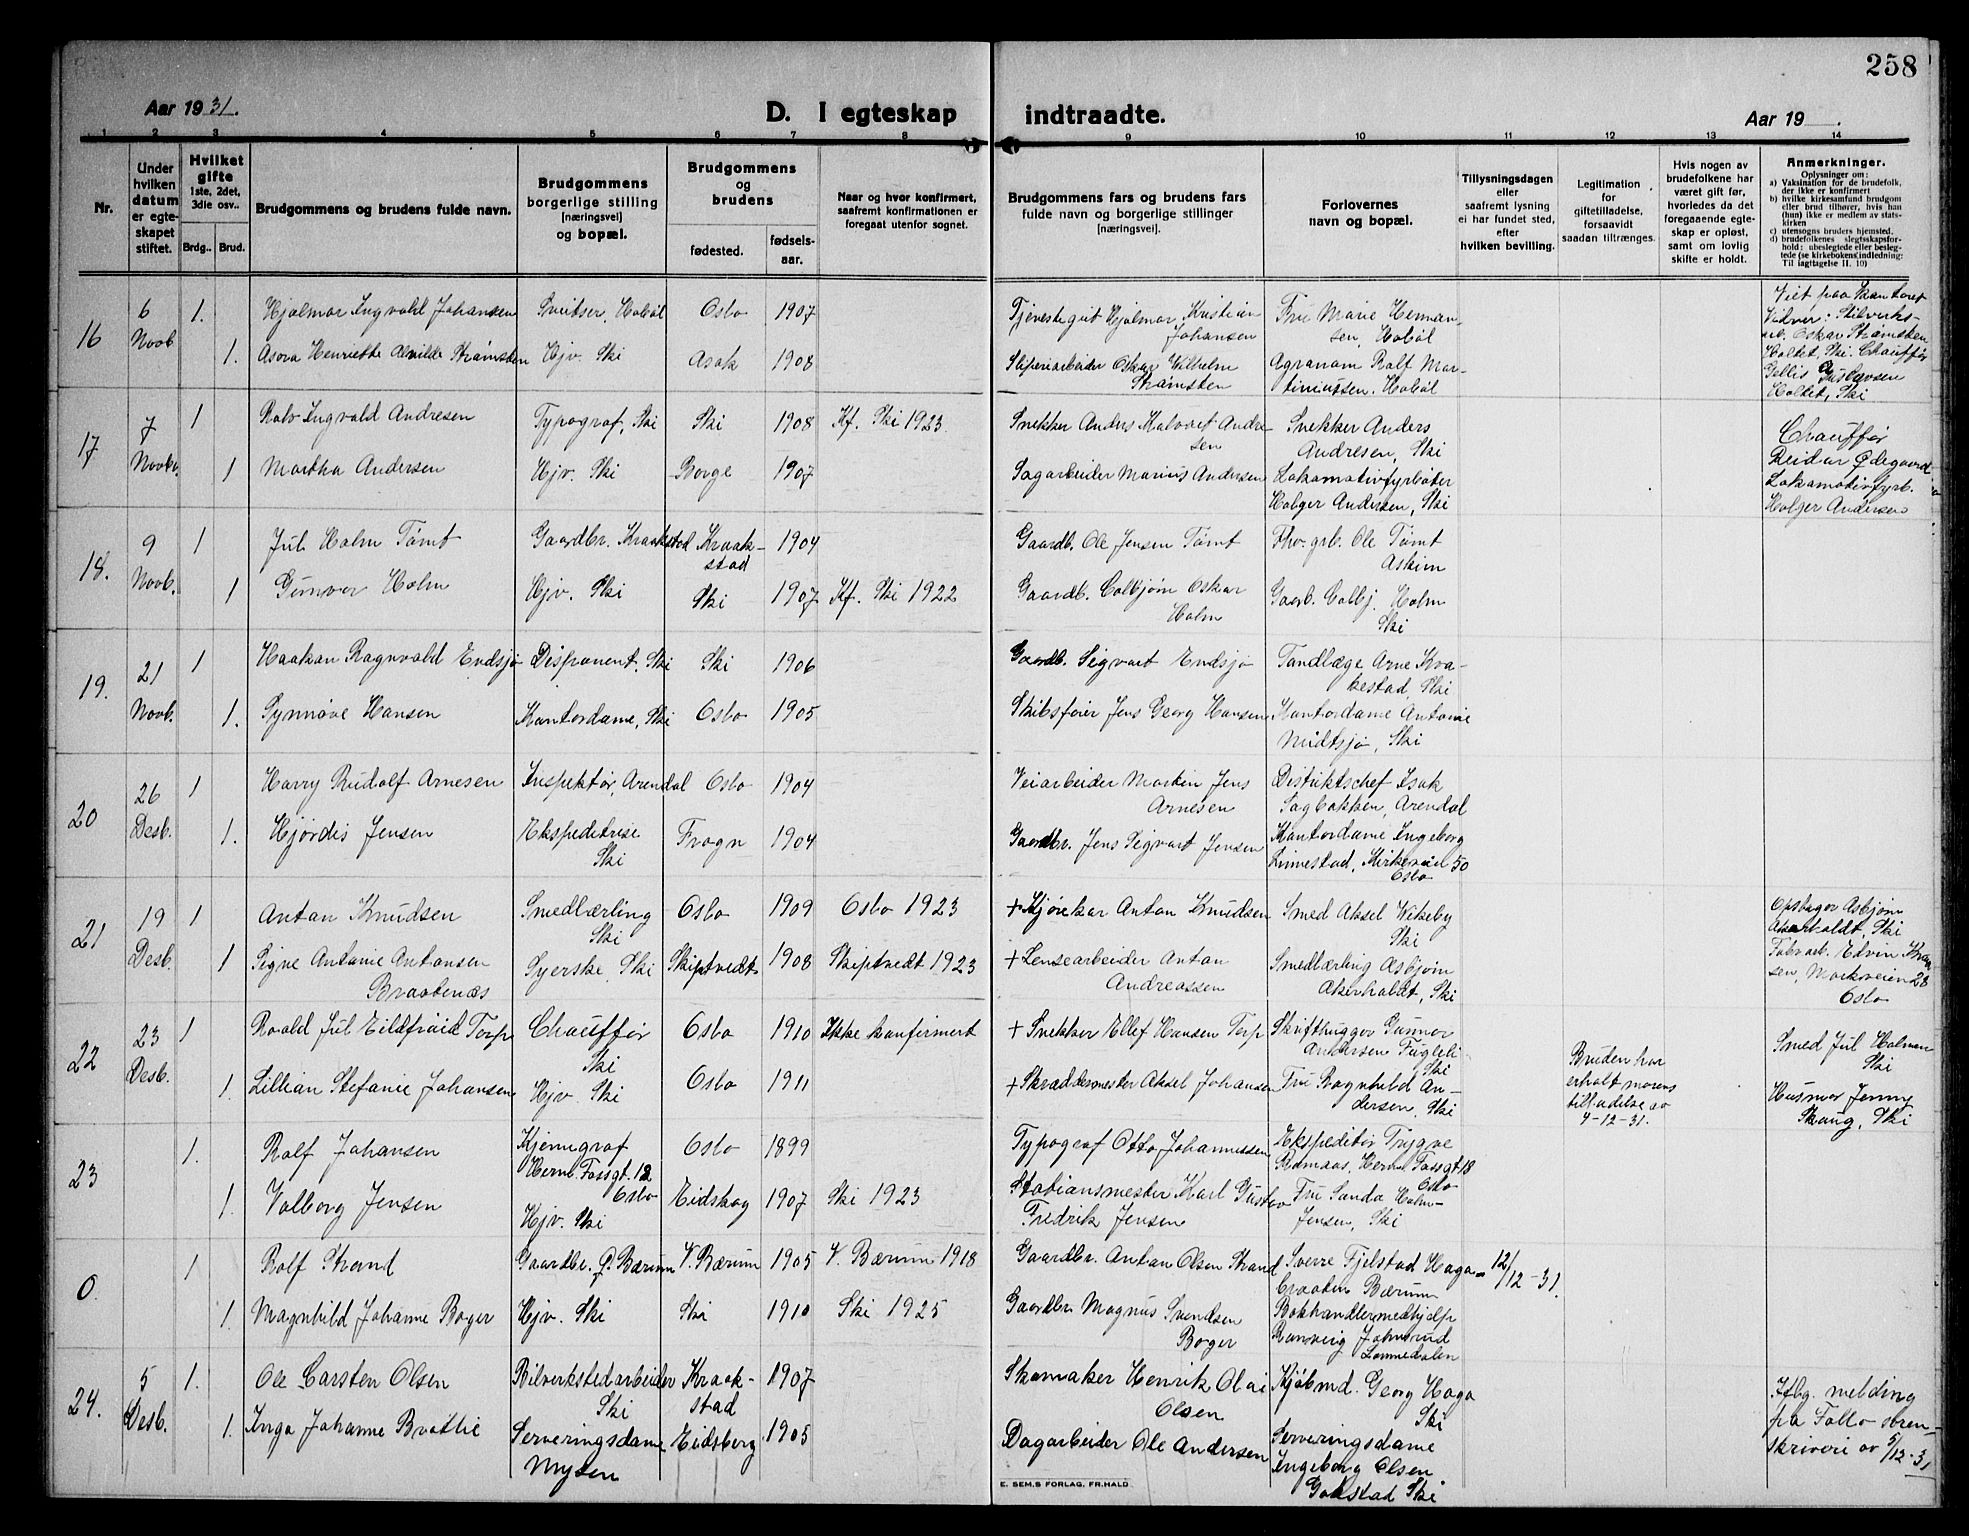 258
Aar 1931.
D. I egteskap indtraadte.
Aar 19 .
1 2 3 4 5 6 7 8 9 10 11 12 13 14
Nr.
Under hvilken datum er egteskapet stiftet.
Hvilket gifte 1ste, 2det, 3die osv..
Brdg.. Brud.
Brudgommens og brudens fulde navn.
Brudgommens borgerlige stilling [næringsvei] og bopæl.
Brudgommens og brudens
fødested.
fødselsaar.
Naar og hvor konfirmert, saafremt konfirmationen er foregaat utenfor sognet.
Brudgommens fars og brudens fars fulde navn og borgerlige stillinger [næringsvei].
Forlovernes navn og bopæl.
Tillysningsdagen eller saafremt lysning ei har fundet sted, efter hvilken bevilling.
Legitimation for giftetilladelse, forsaavidt saadan tiltrænges.
Hvis nogen av brudefolkene har været gift før, hvorledes da det foregaaende egteskap er opløst, samt om lovlig skifte er holdt.
Anmerkninger.
Oplysninger om:
a) Vaksination for de brudefolk, der ikke er konfirmert
b) hvilke kirkesamfund brudgom eller brud tilhører, hvis han (hun) ikke er medlem av statskirken
c) utensogns bruders hjemsted.
d) brudefolkenes slegtsskapsforhold: ubeslegtede eller beslegtede (se kirkebokens indledning: Til iagttagelse II. 10)
16 6 Novb 1. Hjalmar Ingvald Johansen Snitser, Hobøl Oslo 1907 Tjenestegut Hjalmar Kristian Johansen Fru Marie Hermansen, Hobøl
1. Asora Henriette Alvilde Strømsten Hjv. Ski Asak 1908 Sliperiarbeider Oskar Wilhelm Strømsten Agronom Rolf Martiniussen, Hobøl
Viet paa kontoret
Vidner: Slivverks-
arb. Oskar Strømsten
Holtet, Ski. Chauffør
Gustavsen
Holtet, Ski
17 7 Novbr. 1 Rolv Ingvald Andresen Typograf, Ski Ski 1908 Kf. Ski 1923 Snekker Anders Halvart Andresen Snekker Anders Andresen, Ski
1 Martha Andersen Hjv. Ski Borge 1907 Sagarbeider Marius Andersen Lokomotivfyrbøter Holger Andersen, Ski
Chauffør
Reidar Ødegaard
Lokomotivfyrb.
Holger Andersen
18. 9 Novb. 1 Jul Holm Tømt Gaardbr. Kraakstad Kraakstad 1904 Gaardb. Ole Jensen Tømt Fhv. grb. Ole Tømt Askim
1 Gunvor Holm Hjv. Ski Ski 1907 Kf. Ski 1922 Gaardb. Colbjørn Oskar Holm Gaarb. Colbj. Holm Ski
19. 21 Novb. 1 Haakon Ragnvald Endsjø Disponent, Ski Ski 1906 Gaardb. Sigvart Endsjø Tandlæge Arne Krakestad, Ski
1. Synnøve Hansen Kontordame, Ski Oslo 1905 Skibsfører Jens Georg Hansen Kontordame Antonie Midtsjø, Ski
20 26 Desb. 1 Harry Rudolf Arnesen Inspektør, Arendal Oslo 1904 Veiarbeider Martin Jens Arnesen Distriktschef Isak Sagbakken, Arendal
1. Hjørdis Jensen Ekspeditrise Ski Frogn 1904 Gaardbr. Jens Sigvart Jensen Kontordame Ingeborg Linnestad, Kirkeveien 50 Oslo
21 19 Desb. 1 Anton Knudsen Smedlærling Ski Oslo 1909 Oslo 1923 + Kjørekar Anton Knudsen Smed Aksel Wikeby Ski
1 Signe Antonie Antonsen Braatenæs Syerske, Ski Skiptvedt 1908 Skiptvedt 1923 + Lensearbeider Anton Andreassen Smedlærling Asbjørn Akerholdt, Ski
Asbjørn
Akerholdt, Ski
Fabrarb. Edvin
Markveien 28
Oslo
22 23 Desb. 1 Roald Jul Eilifraid Torp Chauffør Ski Oslo 1910 Ikke konfirmert + Snekker Ellef Hansen Torp Skrifthugger Gunnar Andersen Fugleli Ski
1. Lillian Stefanie Johansen Hjv. Ski Oslo 1911 + Skræddermester Aksel Johansen Fru Ragnhild Andersen, Ski
Bruden har
erholt morens
tilladelse av
4-12-31.
Smed Jul Holmen
Ski
Husmor Jenny
Skaug, Ski
23 1. Rolf Johansen Kjemigraf Herm. Fossgt. 12 Oslo Oslo 1899 Typograf Otto Johannessen Ekspeditør Trygve Romaas, Herm Fossgt. 18 Oslo
1. Valborg Jensen Hjv. Ski Eidskog 1907 Ski 1923 Stationsmester Karl Gustav Fredrik Jensen Fru Sanda Holm-Jensen, Ski
0 1 Rolf Strand Gaardbr. Ø. Bærum V. Bærum 1905 V. Bærum 1918 Gaardbr. Anton Olsen Strand Sverre Fjelstad Hagabraaten Bærum 12/12-31.
1. Magnhild Johanne Boger Hjv. Ski Ski 1910 Ski 1925 Gaardbr. Magnus Svendsen Boger Bokhandlermedhjelp Ranveig Johnsrud Lommedalen
24. 5 Desb. 1. Ole Carsten Olsen Bilverkstedarbeider Ski Kraakstad 1907 Skomaker Henrik Olai Olsen Kjøbmd. Georg Haga Ski
1. Inga Johanne Brøttie Serveringsdame Mysen Eidsberg 1905 Dagarbeider Ole Andersen Serveringsdame Ingeborg Olsen Gokstad Ski
Iflg. melding
fra Follo soren-
skriveri av 5/12-31
E. SEM.S FORLAG, FR.HALD